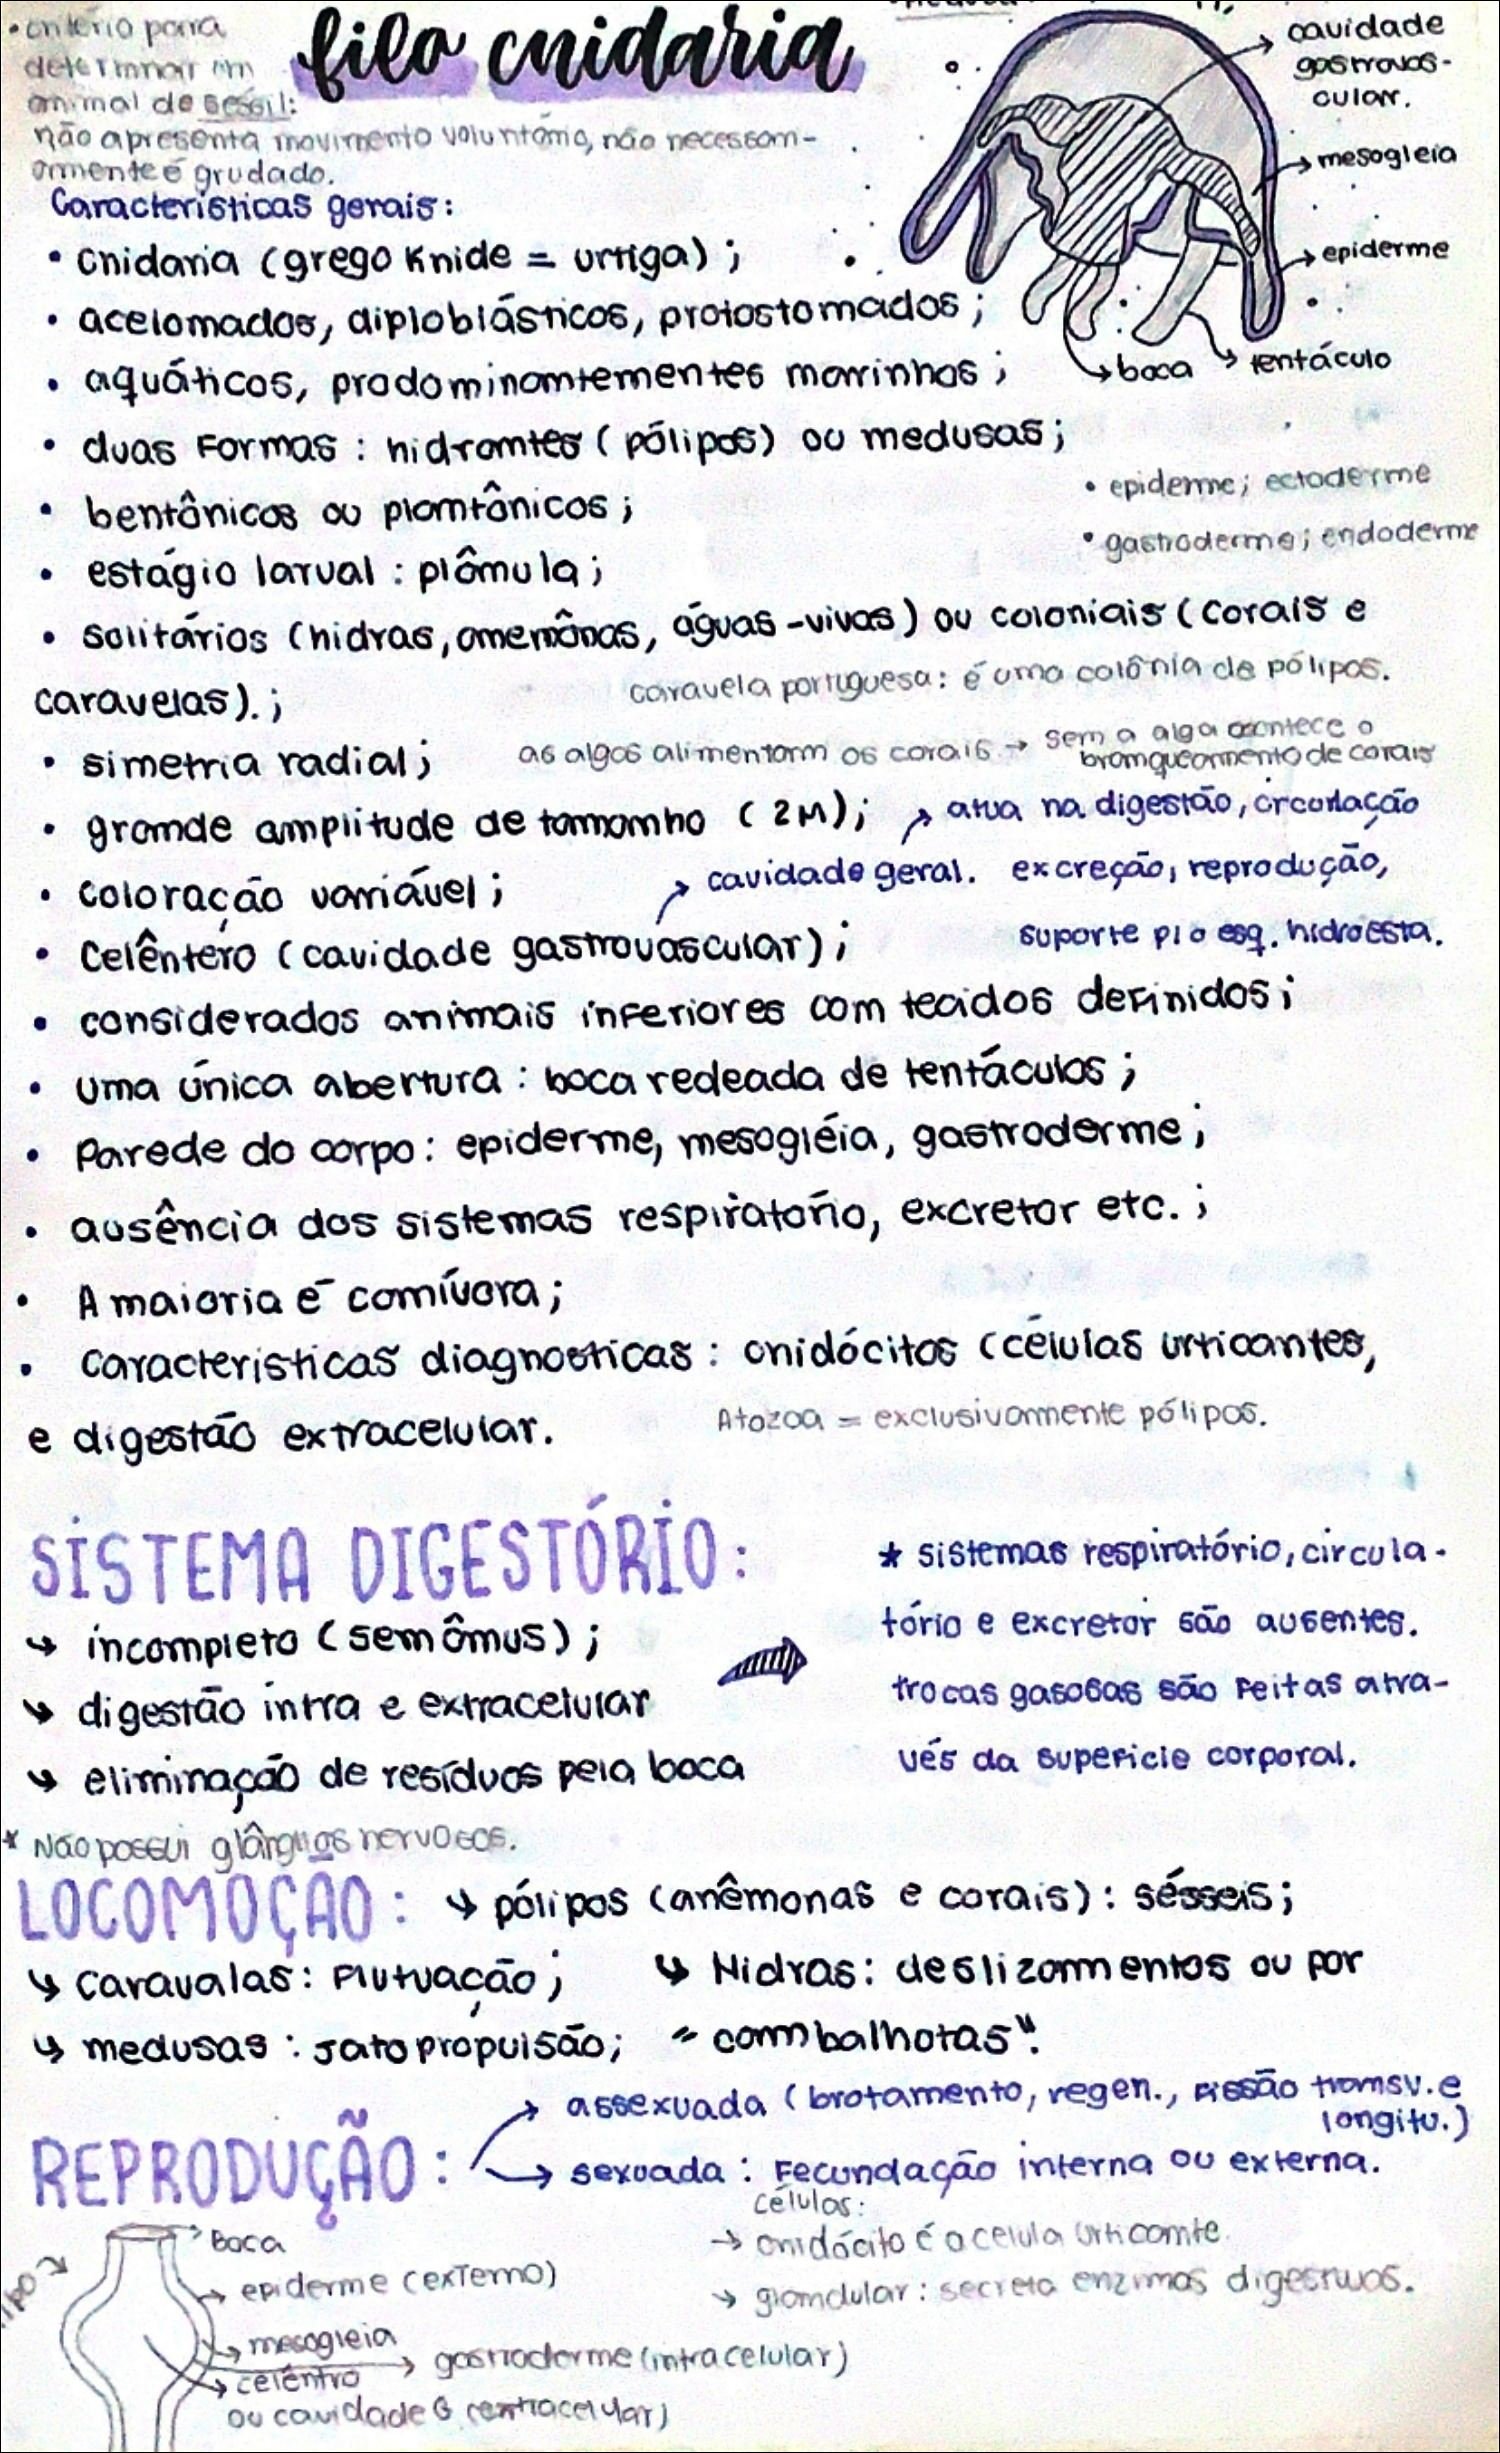 • critério para
determinar um
animal de séssil:
não apresenta movimento voluntário, não necessam-
armente é grudado.
filo cnidaria
cavidade
gastrovas-
cular.
mesogleia
epiderme
boca
tentáculo
Características gerais:
• Cnidaria (grego Knide = urtiga);
• acelomados, diploblásticos, protostomados;
• aquáticos, prodominantementes marinhos;
• duas formas: hidrantes (pólipos) ou medusas;
• epiderme; ectoderme
• bentônicos ou plantônicos;
• gastroderme; endoderme
• estágio larval: plânula;
• solitários (hidras, anemônas, águas-vivas) ou coloniais (corais e
caravelas).;
caravela portuguesa: é uma colônia de pólipos.
• simetria radial;
as algas alimentam os corais → sem a alga acontece o
branqueamento de corais
• grande amplitude de tamanho (2M);
atua na digestão, circulação
excreção, reprodução,
suporte p/ o esq. hidroesta.
• Coloração variável;
cavidade geral.
• Celêntero (cavidade gastrovascular);
• considerados animais inferiores com tecidos definidos;
• uma única abertura: boca redeada de tentáculos;
• Parede do corpo: epiderme, mesogléia, gastroderme;
• ausência dos sistemas respiratório, excretor etc.;
• A maioria é carnívora;
• Caracteristicas diagnosticas: cnidócitos (células urticantes,
e digestão extracelular.
Atozoa = exclusivamente pólipos.
SISTEMA DIGESTÓRIO:
↳ incompleto (sem ânus);
↳ digestão intra e extracelular
↳ eliminação de resíduos pela boca
* sistemas respiratório, circula-
tório e excretor são ausentes.
trocas gasosas são feitas atra-
vés da superficie corporal.
* Não possui glânglios nervosos.
LOCOMOÇÃO: ↳ pólipos (anêmonas e corais): sésseis;
↳ Caravalas: Flutuação;
↳ Hidras: deslizamentos ou por
"cambalhotas".
↳ medusas: Jato propulsão;
REPRODUÇÃO:
assexuada (brotamento, regen., fissão transv. e
longitu.)
sexuada: Fecundação interna ou externa.
células:
→ cnidócito é a celula urticante.
→ glandular: secreta enzimas digestivas.
Boca
epiderme (externo)
mesogleia
gastroderme (intracelular)
celêntro
ou cavidade G (extracelular)